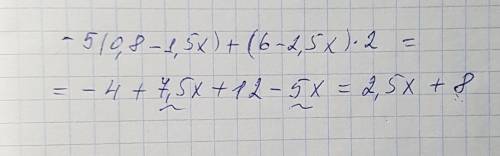 -5(0,8-1,5x)+(6-2,5x)·2 =
= -4+7,5x+12-5x = 2,5x+8